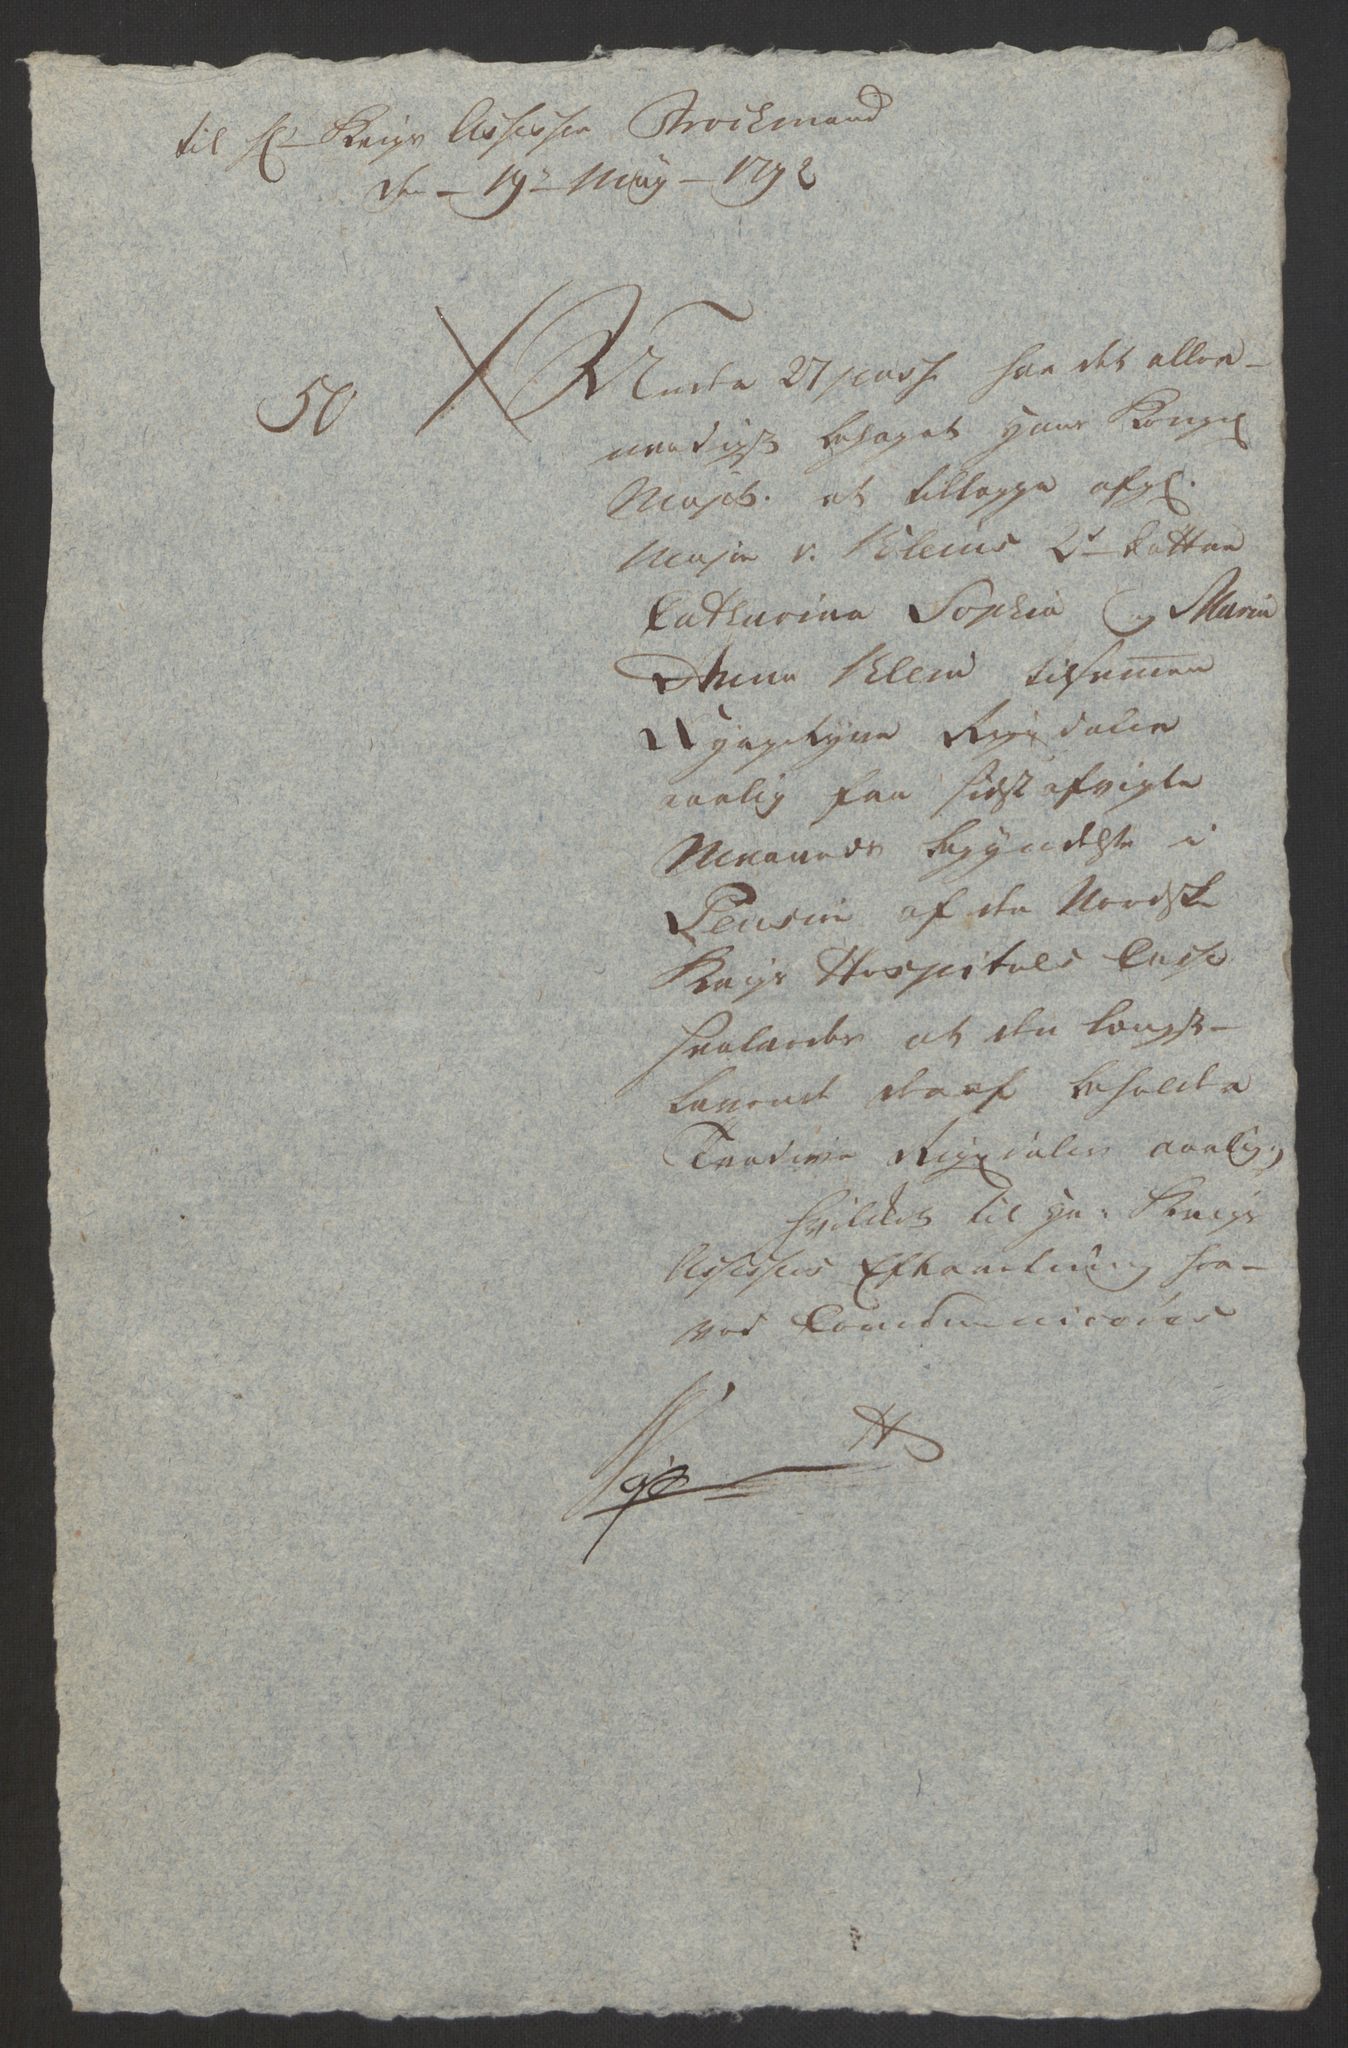 til Hr Krigs Assessor Brockmand
den 19de May 1792
50
Under 27 pass. har det aller-
naadigst behaget Hans Kongl
Majst. at tillægge afgl.
Major v. Kleins 2de Døttre
Catharina Sophia og Maria
Anna Klein tilsammen
Rigsdaler
aarlig fra sidst afvigte
Maaneds begyndelse i
Pension af den Norske
Krigs Hospitals Casse
saaledes at den længst-
levende deraf beholder
Tredive Rigsdaler aarlig,
hvilket til Hr. Krigs
Assessors Efterretning her-
ved Communiceres